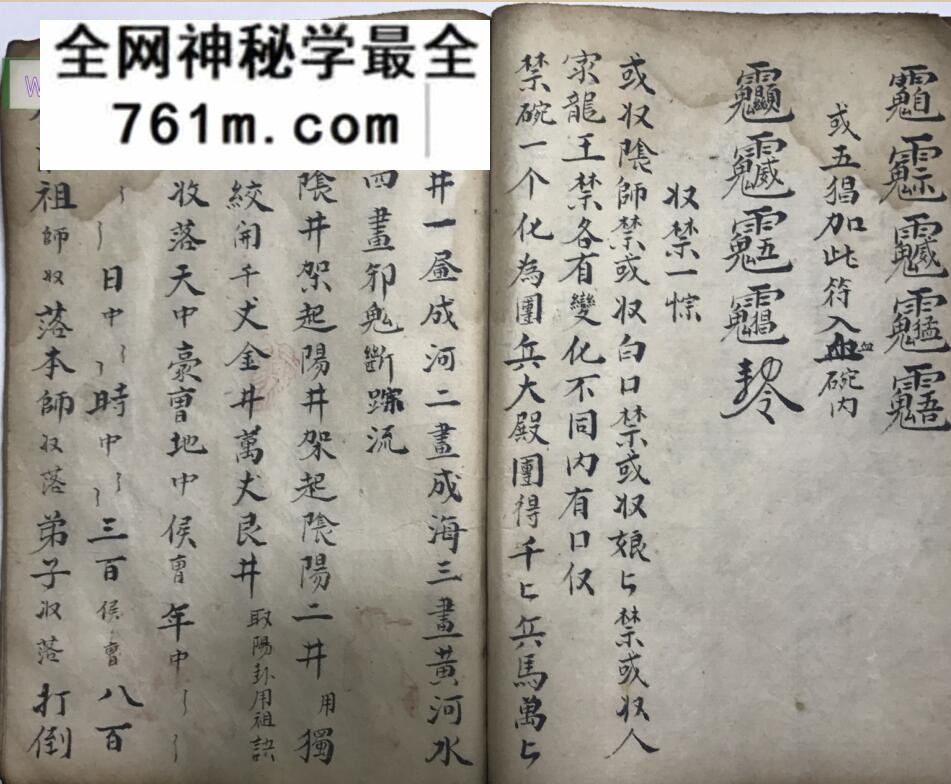 全网神秘学最全
761m.com
或五猖加此符入血碗内
収禁一宗
或収陰師禁或収白口禁或収娘匕禁或収人
家龍王禁各有變化不同内有口仅
禁碗一个化為團兵大殿團得千匕兵馬萬匕
井一晝成河二畫成海三畫黄河水
四畫邪鬼斷踪流
陰井架起陽井架起陰陽二井用獨
絞開千丈金井萬丈艮井取陽卦用祖訣
收落天中豪曺地中侯曺年中
日中時中三百侯曺八百
祖師収落本師収落弟子収落打倒